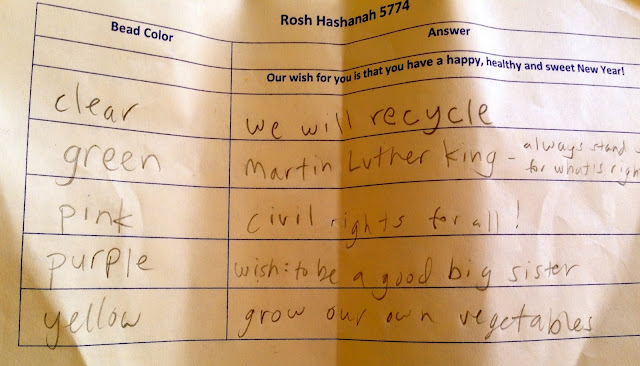 Rosh Hashanah 5774
Bead Color Answer
Our wish for you is that you have a happy, healthy and sweet New Year!
clear we will recycle
green Martin Luther King - always stand
for what's
pink civil rights for all!
purple wish: to be a good big sister
yellow grow our own vegetables